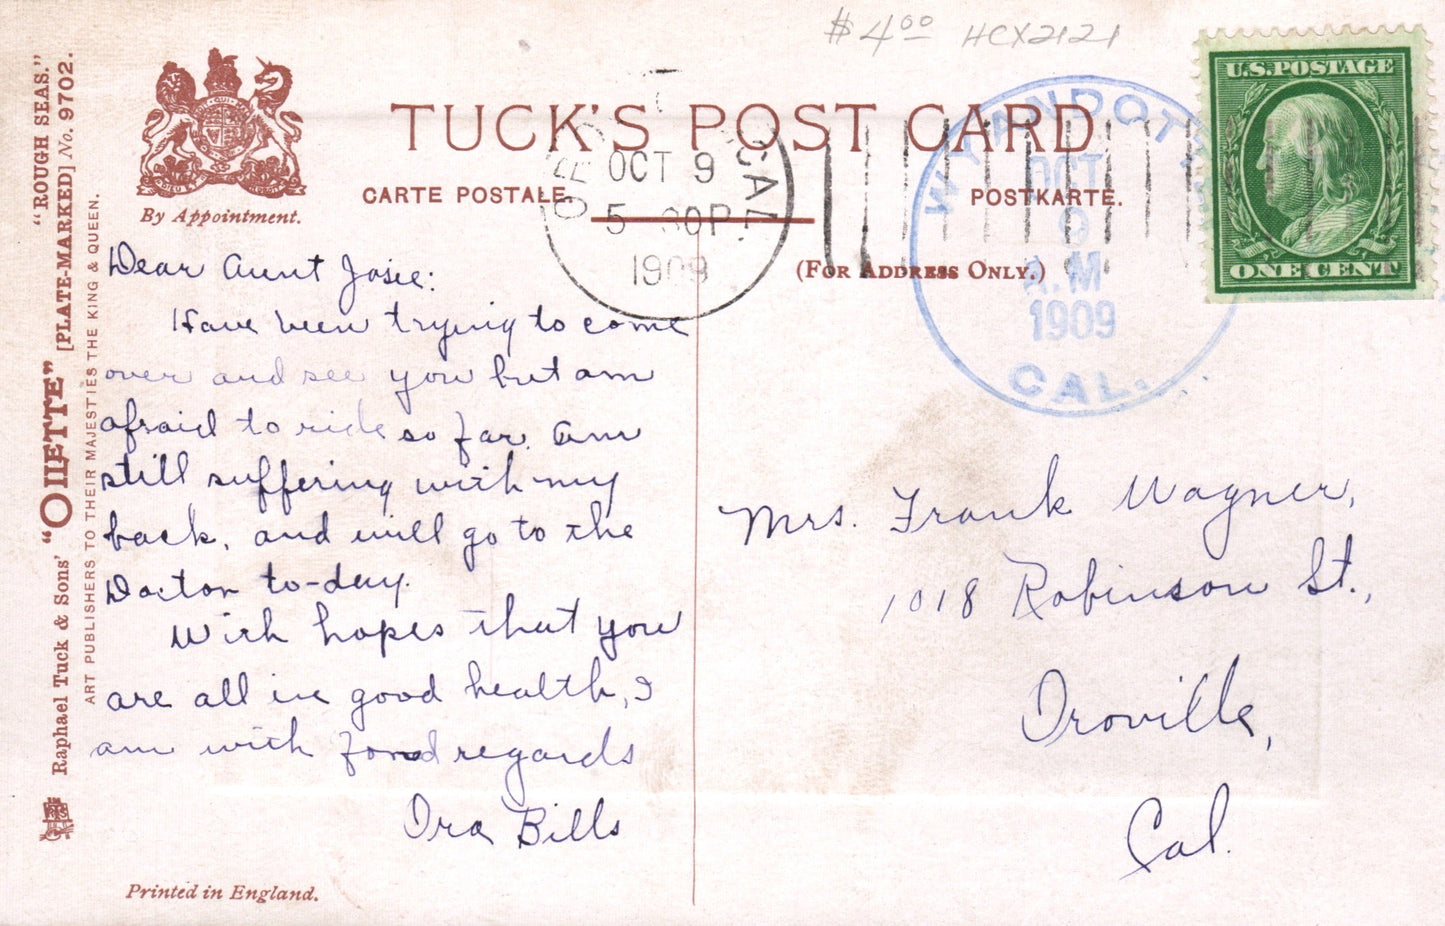 $4.00 HCX2121
U.S. POSTAGE
ONE CENT
TUCK'S POST CARD
CARTE POSTALE.
POSTKARTE.
(FOR ADDRESS ONLY.)
By Appointment.
OCT 9
5 30P.
1909
CAL.
WYANDOTTE
OCT
9
A.M
1909
CAL.
"ROUGH SEAS."
[PLATE-MARKED] No. 9702.
Raphael Tuck & Sons' "OILETTE"
ART PUBLISHERS TO THEIR MAJESTIES THE KING & QUEEN.
Dear Aunt Josie:
Have been trying to come
over and see you but am
afraid to ride so far. Am
still suffering with my
back, and will go to the
Doctor to-day.
With hopes that you
are all in good health, I
am with fond regards
Ora Bills
Mrs. Frank Wagner,
1018 Robinson St.,
Oroville,
Cal.
Printed in England.